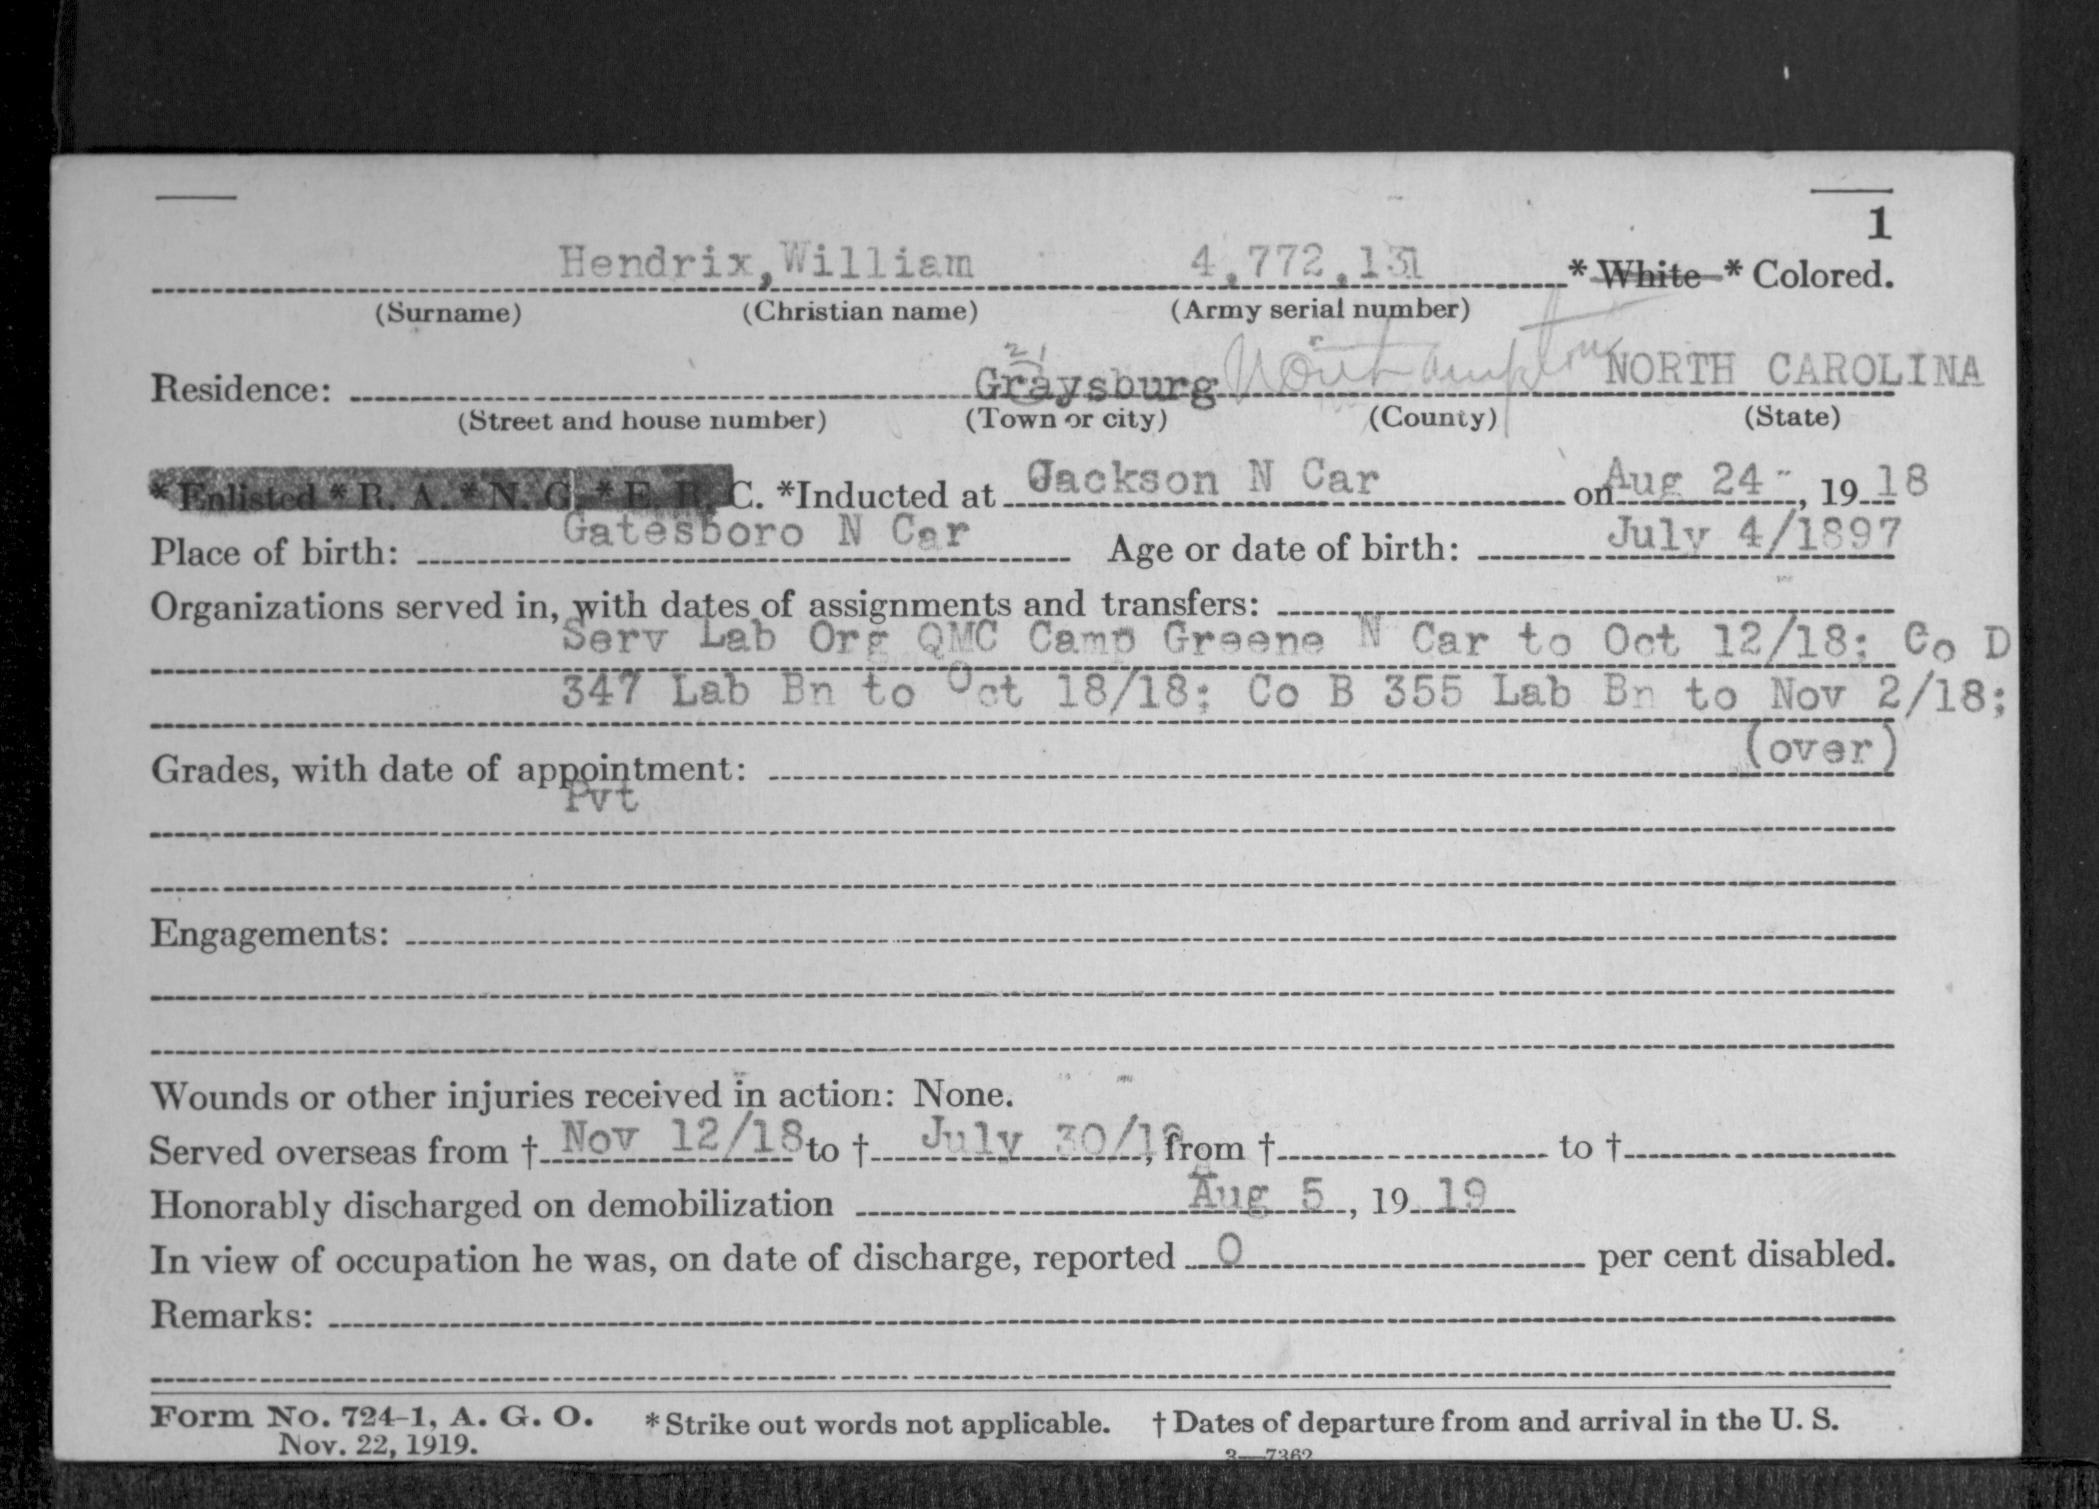 1
Hendrix, William 4,772,131 * White * Colored.
(Surname) (Christian name) (Army serial number)
21
Residence: Graysburg Northampton NORTH CAROLINA
(Street and house number) (Town or city) (County) (State)
* Enlisted * R. A. * N. G. * E. R. C. *Inducted at Jackson N Car on Aug 24, 19 18
Place of birth: Gatesboro N Car Age or date of birth: July 4/1897
Organizations served in, with dates of assignments and transfers:
Serv Lab Org QMC Camp Greene N Car to Oct 12/18; Co D
347 Lab Bn to Oct 18/18; Co B 355 Lab Bn to Nov 2/18;
(over)
Grades, with date of appointment:
Pvt
Engagements:
Wounds or other injuries received in action: None.
Served overseas from † Nov 12/18 to † July 30/19, from † to †
Honorably discharged on demobilization Aug 5, 19 19
In view of occupation he was, on date of discharge, reported 0 per cent disabled.
Remarks:
Form No. 724-1, A. G. O. * Strike out words not applicable. † Dates of departure from and arrival in the U. S.
Nov. 22, 1919. 3—7362